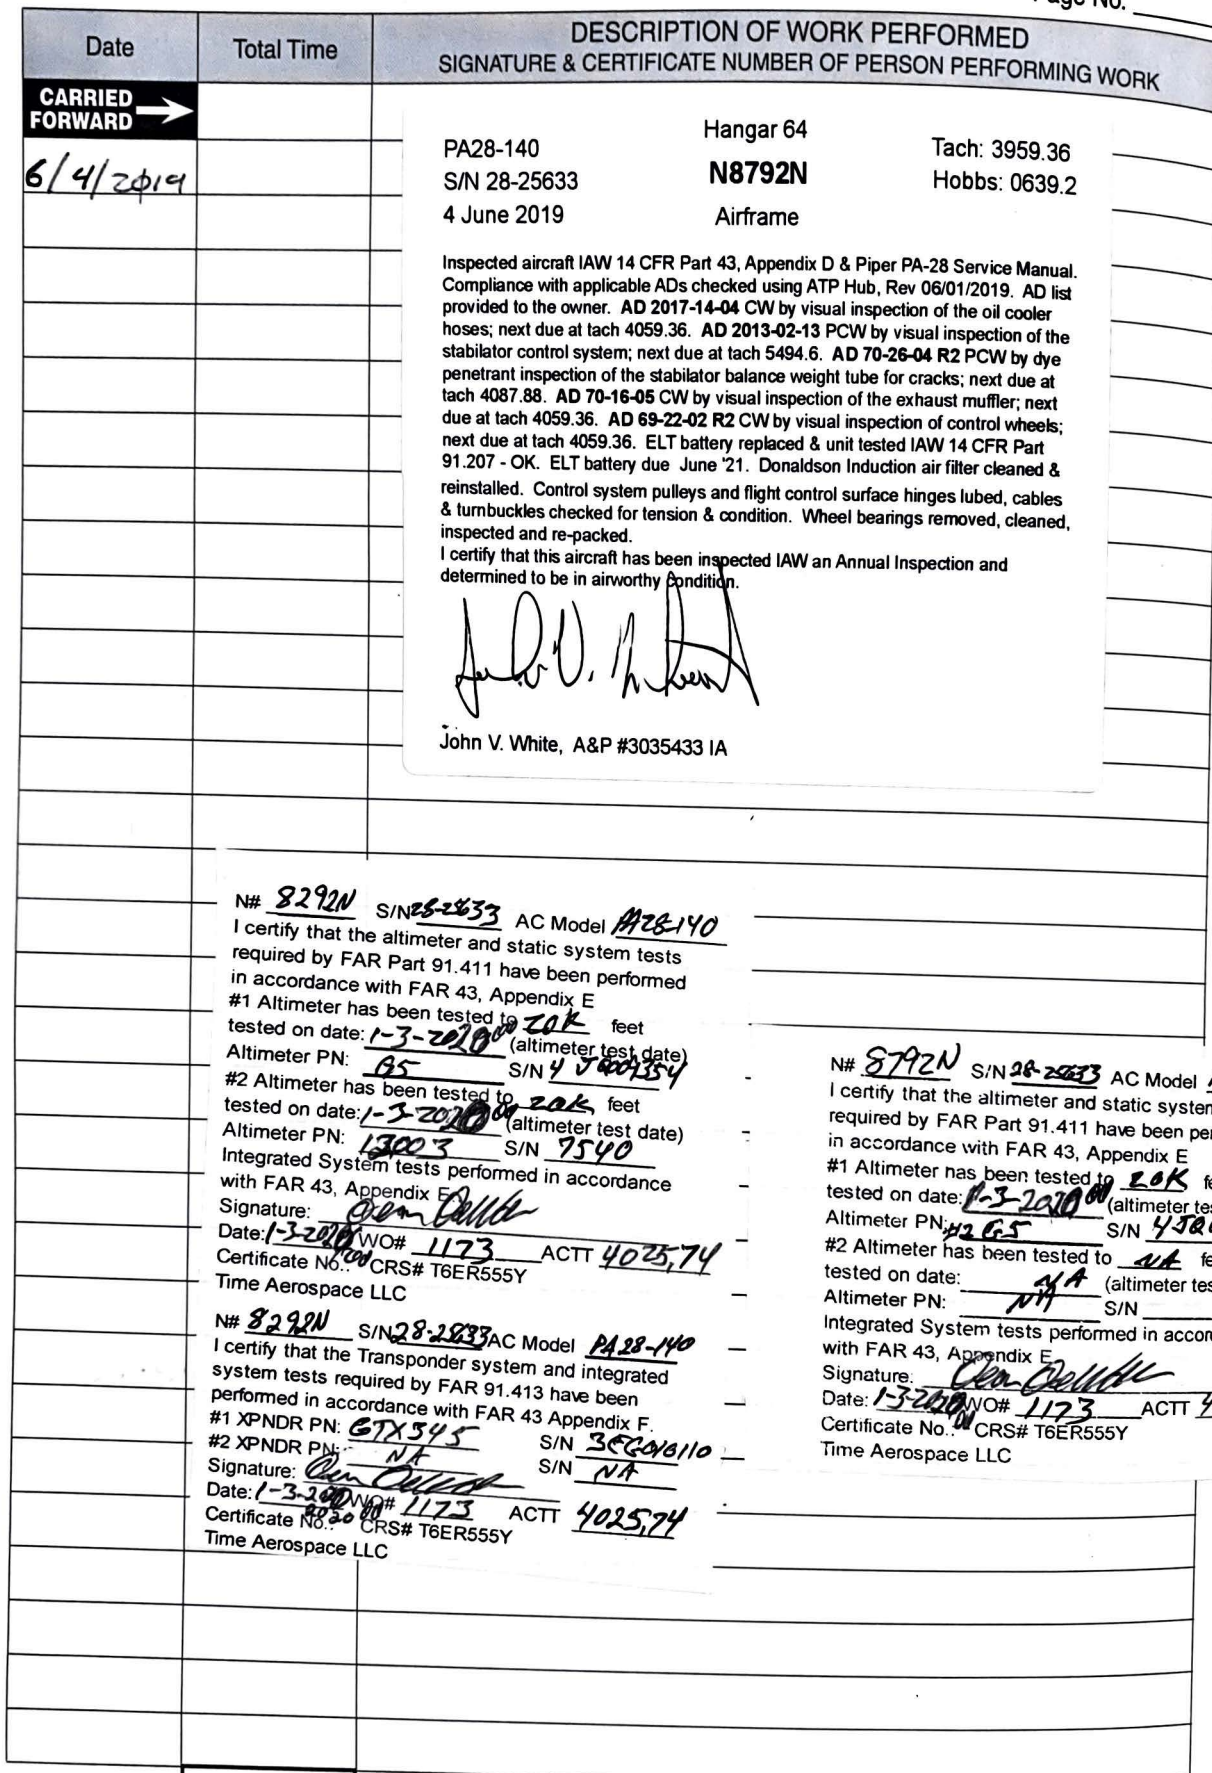 Page No.
Date
Total Time
DESCRIPTION OF WORK PERFORMED
SIGNATURE & CERTIFICATE NUMBER OF PERSON PERFORMING WORK
CARRIED
FORWARD
6/4/2019
Hangar 64
PA28-140
N8792N
Tach: 3959.36
S/N 28-25633
Hobbs: 0639.2
4 June 2019
Airframe
Inspected aircraft IAW 14 CFR Part 43, Appendix D & Piper PA-28 Service Manual.
Compliance with applicable ADs checked using ATP Hub, Rev 06/01/2019. AD list
provided to the owner. AD 2017-14-04 CW by visual inspection of the oil cooler
hoses; next due at tach 4059.36. AD 2013-02-13 PCW by visual inspection of the
stabilator control system; next due at tach 5494.6. AD 70-26-04 R2 PCW by dye
penetrant inspection of the stabilator balance weight tube for cracks; next due at
tach 4087.88. AD 70-16-05 CW by visual inspection of the exhaust muffler; next
due at tach 4059.36. AD 69-22-02 R2 CW by visual inspection of control wheels;
next due at tach 4059.36. ELT battery replaced & unit tested IAW 14 CFR Part
91.207 - OK. ELT battery due June '21. Donaldson Induction air filter cleaned &
reinstalled. Control system pulleys and flight control surface hinges lubed, cables
& turnbuckles checked for tension & condition. Wheel bearings removed, cleaned,
inspected and re-packed.
I certify that this aircraft has been inspected IAW an Annual Inspection and
determined to be in airworthy condition.
John V. White, A&P #3035433 IA
N# 8292N S/N 28-25633 AC Model PA28-140
I certify that the altimeter and static system tests
required by FAR Part 91.411 have been performed
in accordance with FAR 43, Appendix E
#1 Altimeter has been tested to 20K feet
tested on date: 1-3-2020 (altimeter test date)
Altimeter PN: G5 S/N
#2 Altimeter has been tested to 20K feet
tested on date: 1-3-2020 (altimeter test date)
Altimeter PN: 13003 S/N 7540
Integrated System tests performed in accordance
with FAR 43, Appendix E
Signature:
Date: 1-3-2020 WO# 1173 ACTT 4025,74
Certificate No.: CRS# T6ER555Y
Time Aerospace LLC
N# 8292N S/N 28-25633 AC Model PA28-140
I certify that the Transponder system and integrated
system tests required by FAR 91.413 have been
performed in accordance with FAR 43 Appendix F.
#1 XPNDR PN: GTX345 S/N
#2 XPNDR PN: NA S/N NA
Signature:
Date: 1-3-2020 WO# 1173 ACTT 4025,74
2020
Certificate No.: CRS# T6ER555Y
Time Aerospace LLC
N# 8792N S/N 28-25633 AC Model
I certify that the altimeter and static system
required by FAR Part 91.411 have been per
in accordance with FAR 43, Appendix E
#1 Altimeter has been tested to 20K fe
tested on date: 1-3-2020 (altimeter tes
Altimeter PN: #2 G5 S/N
#2 Altimeter has been tested to NA fe
tested on date: NA (altimeter tes
Altimeter PN: NA S/N
Integrated System tests performed in accor
with FAR 43, Appendix E
Signature:
Date: 1-3-2020 WO# 1173 ACTT 4
Certificate No.: CRS# T6ER555Y
Time Aerospace LLC